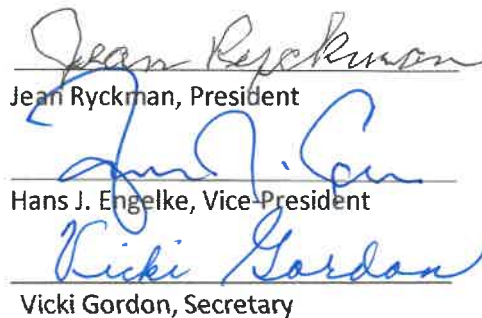 Jean Ryckman
Jean Ryckman, President
Hans J. Engelke, Vice-President
Vicki Gordon
Vicki Gordon, Secretary